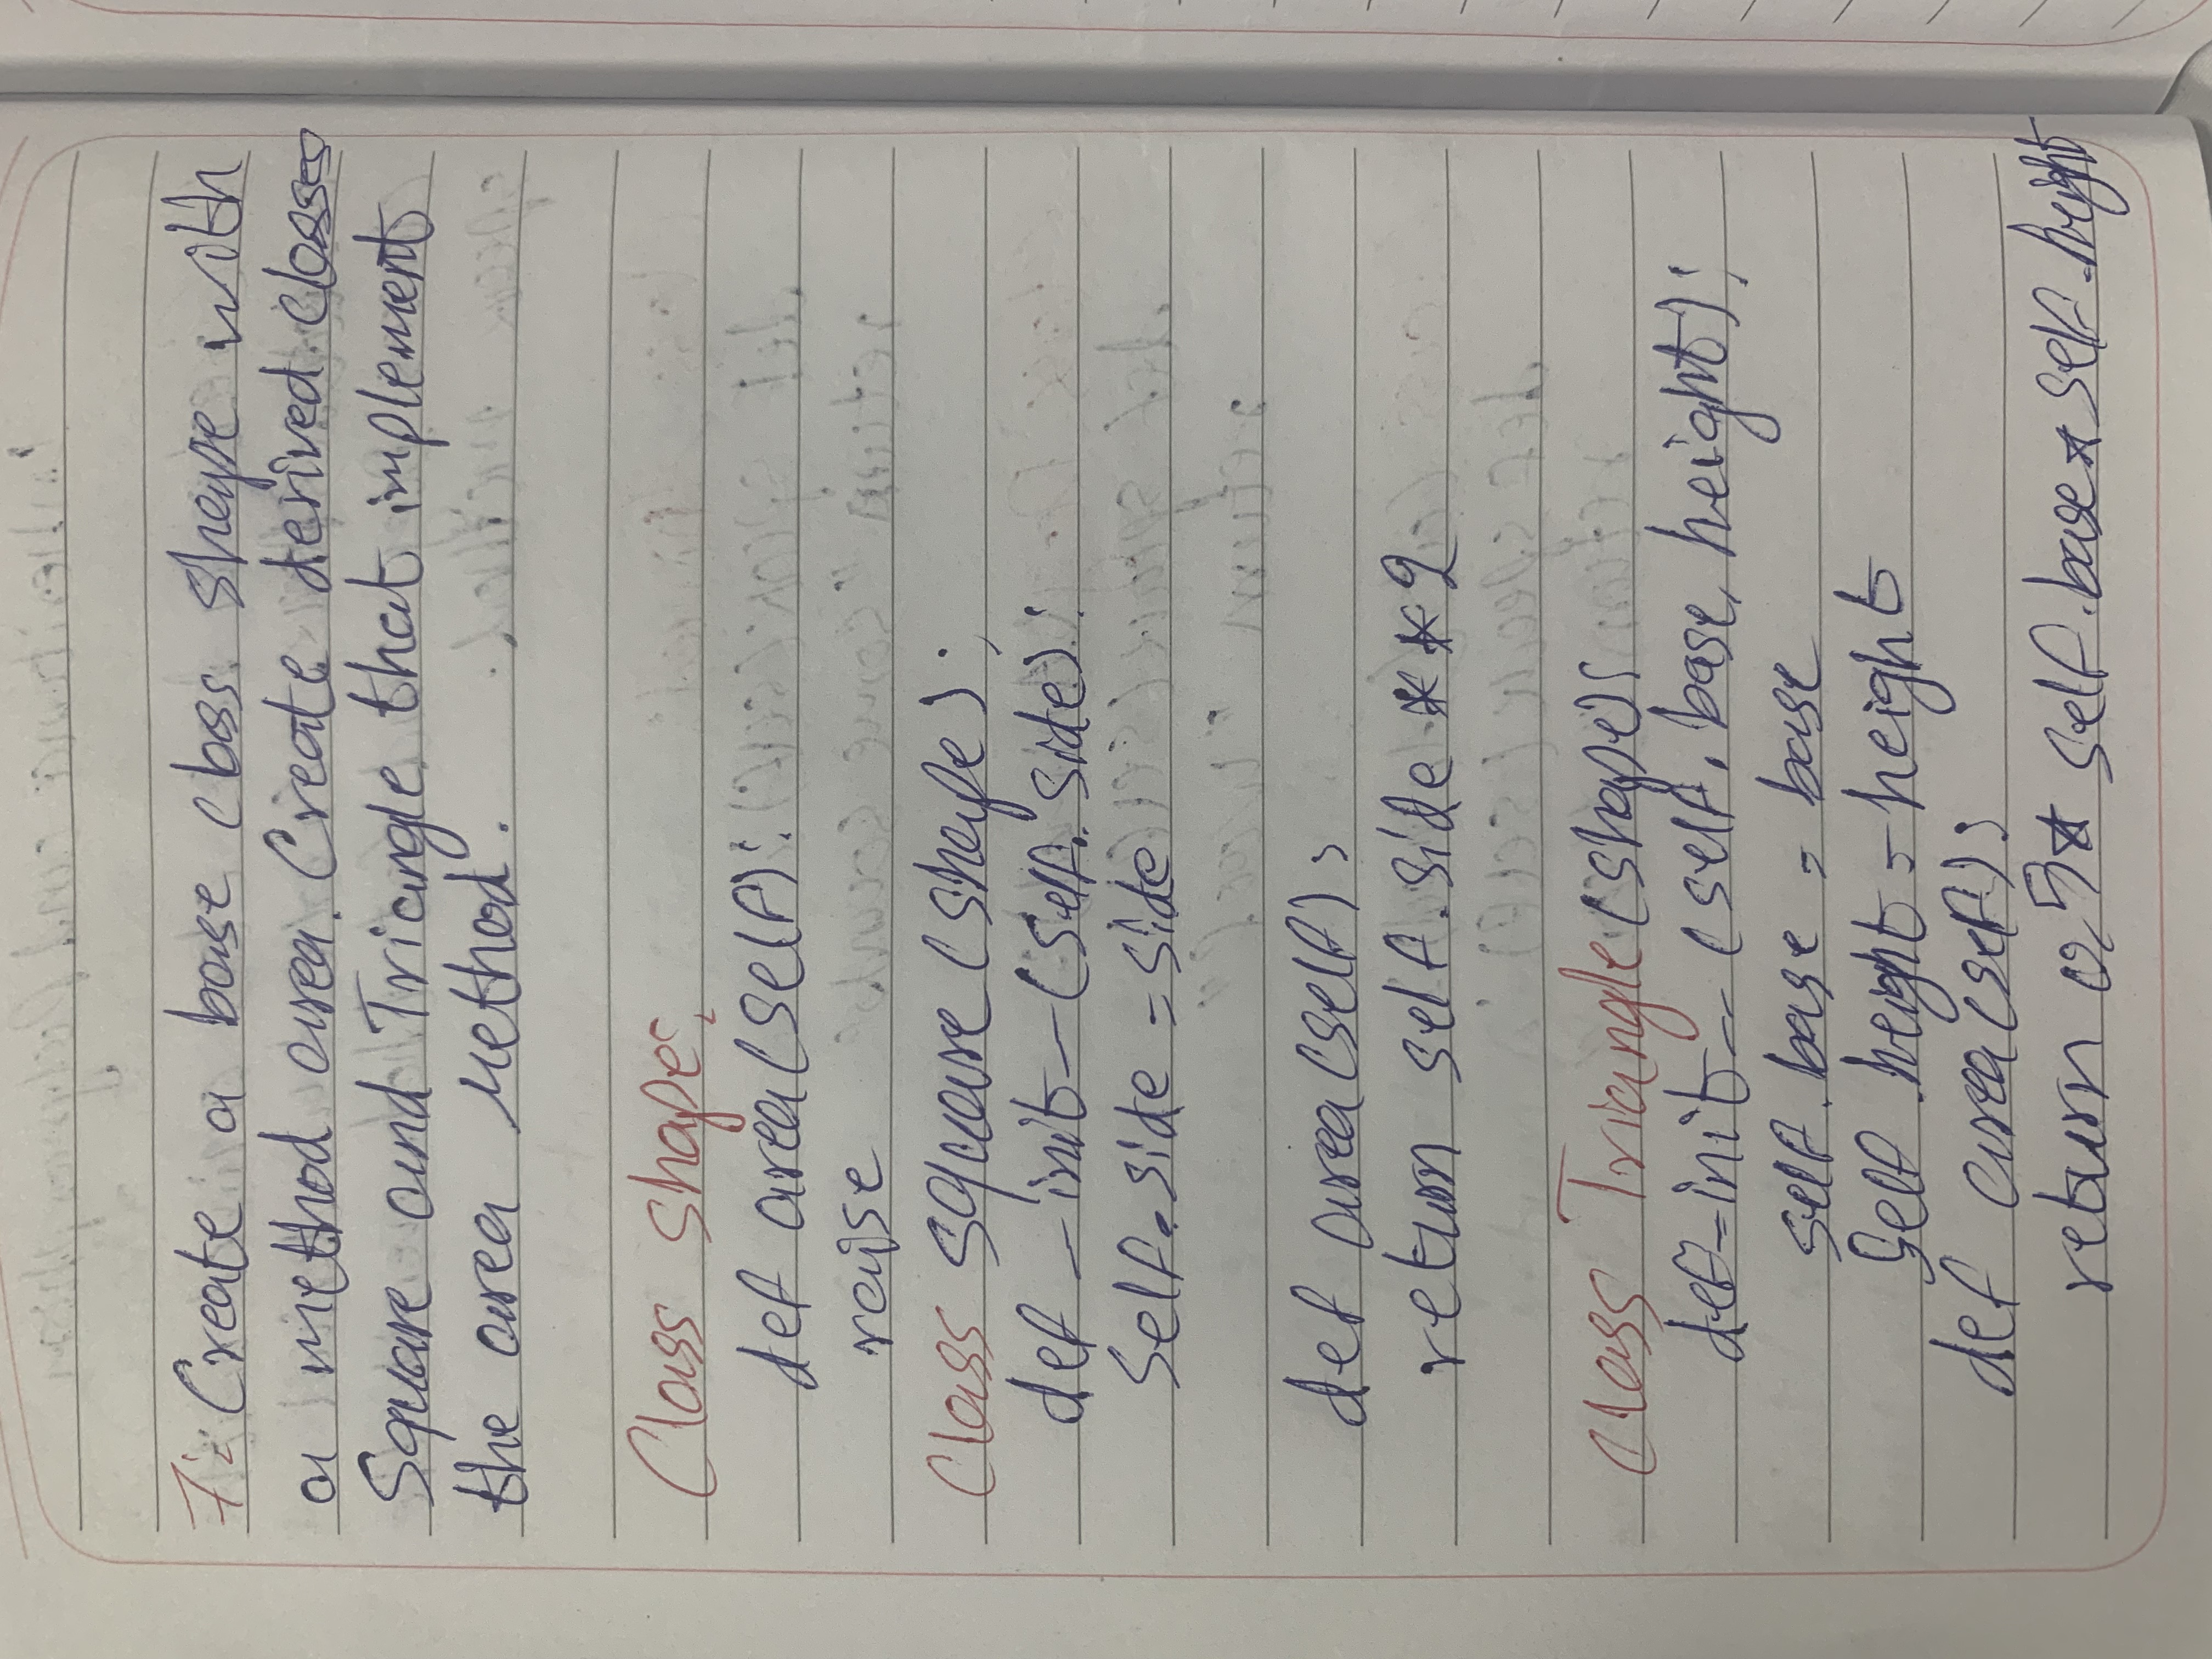 7: Create a base class shape with
a method area. Create derived classes
Square and Triangle that implement
the area Method.
Class shape:
def area(self):
raise
Class square (shape);
def _init_(self. side):
Self.side = side
def area(self):
return self.side **2
class Triangle(shape):
def_init_ (self. base, height):
self.base = base
Self.height = height
def area(self):
return 0.5* self.base* self.height